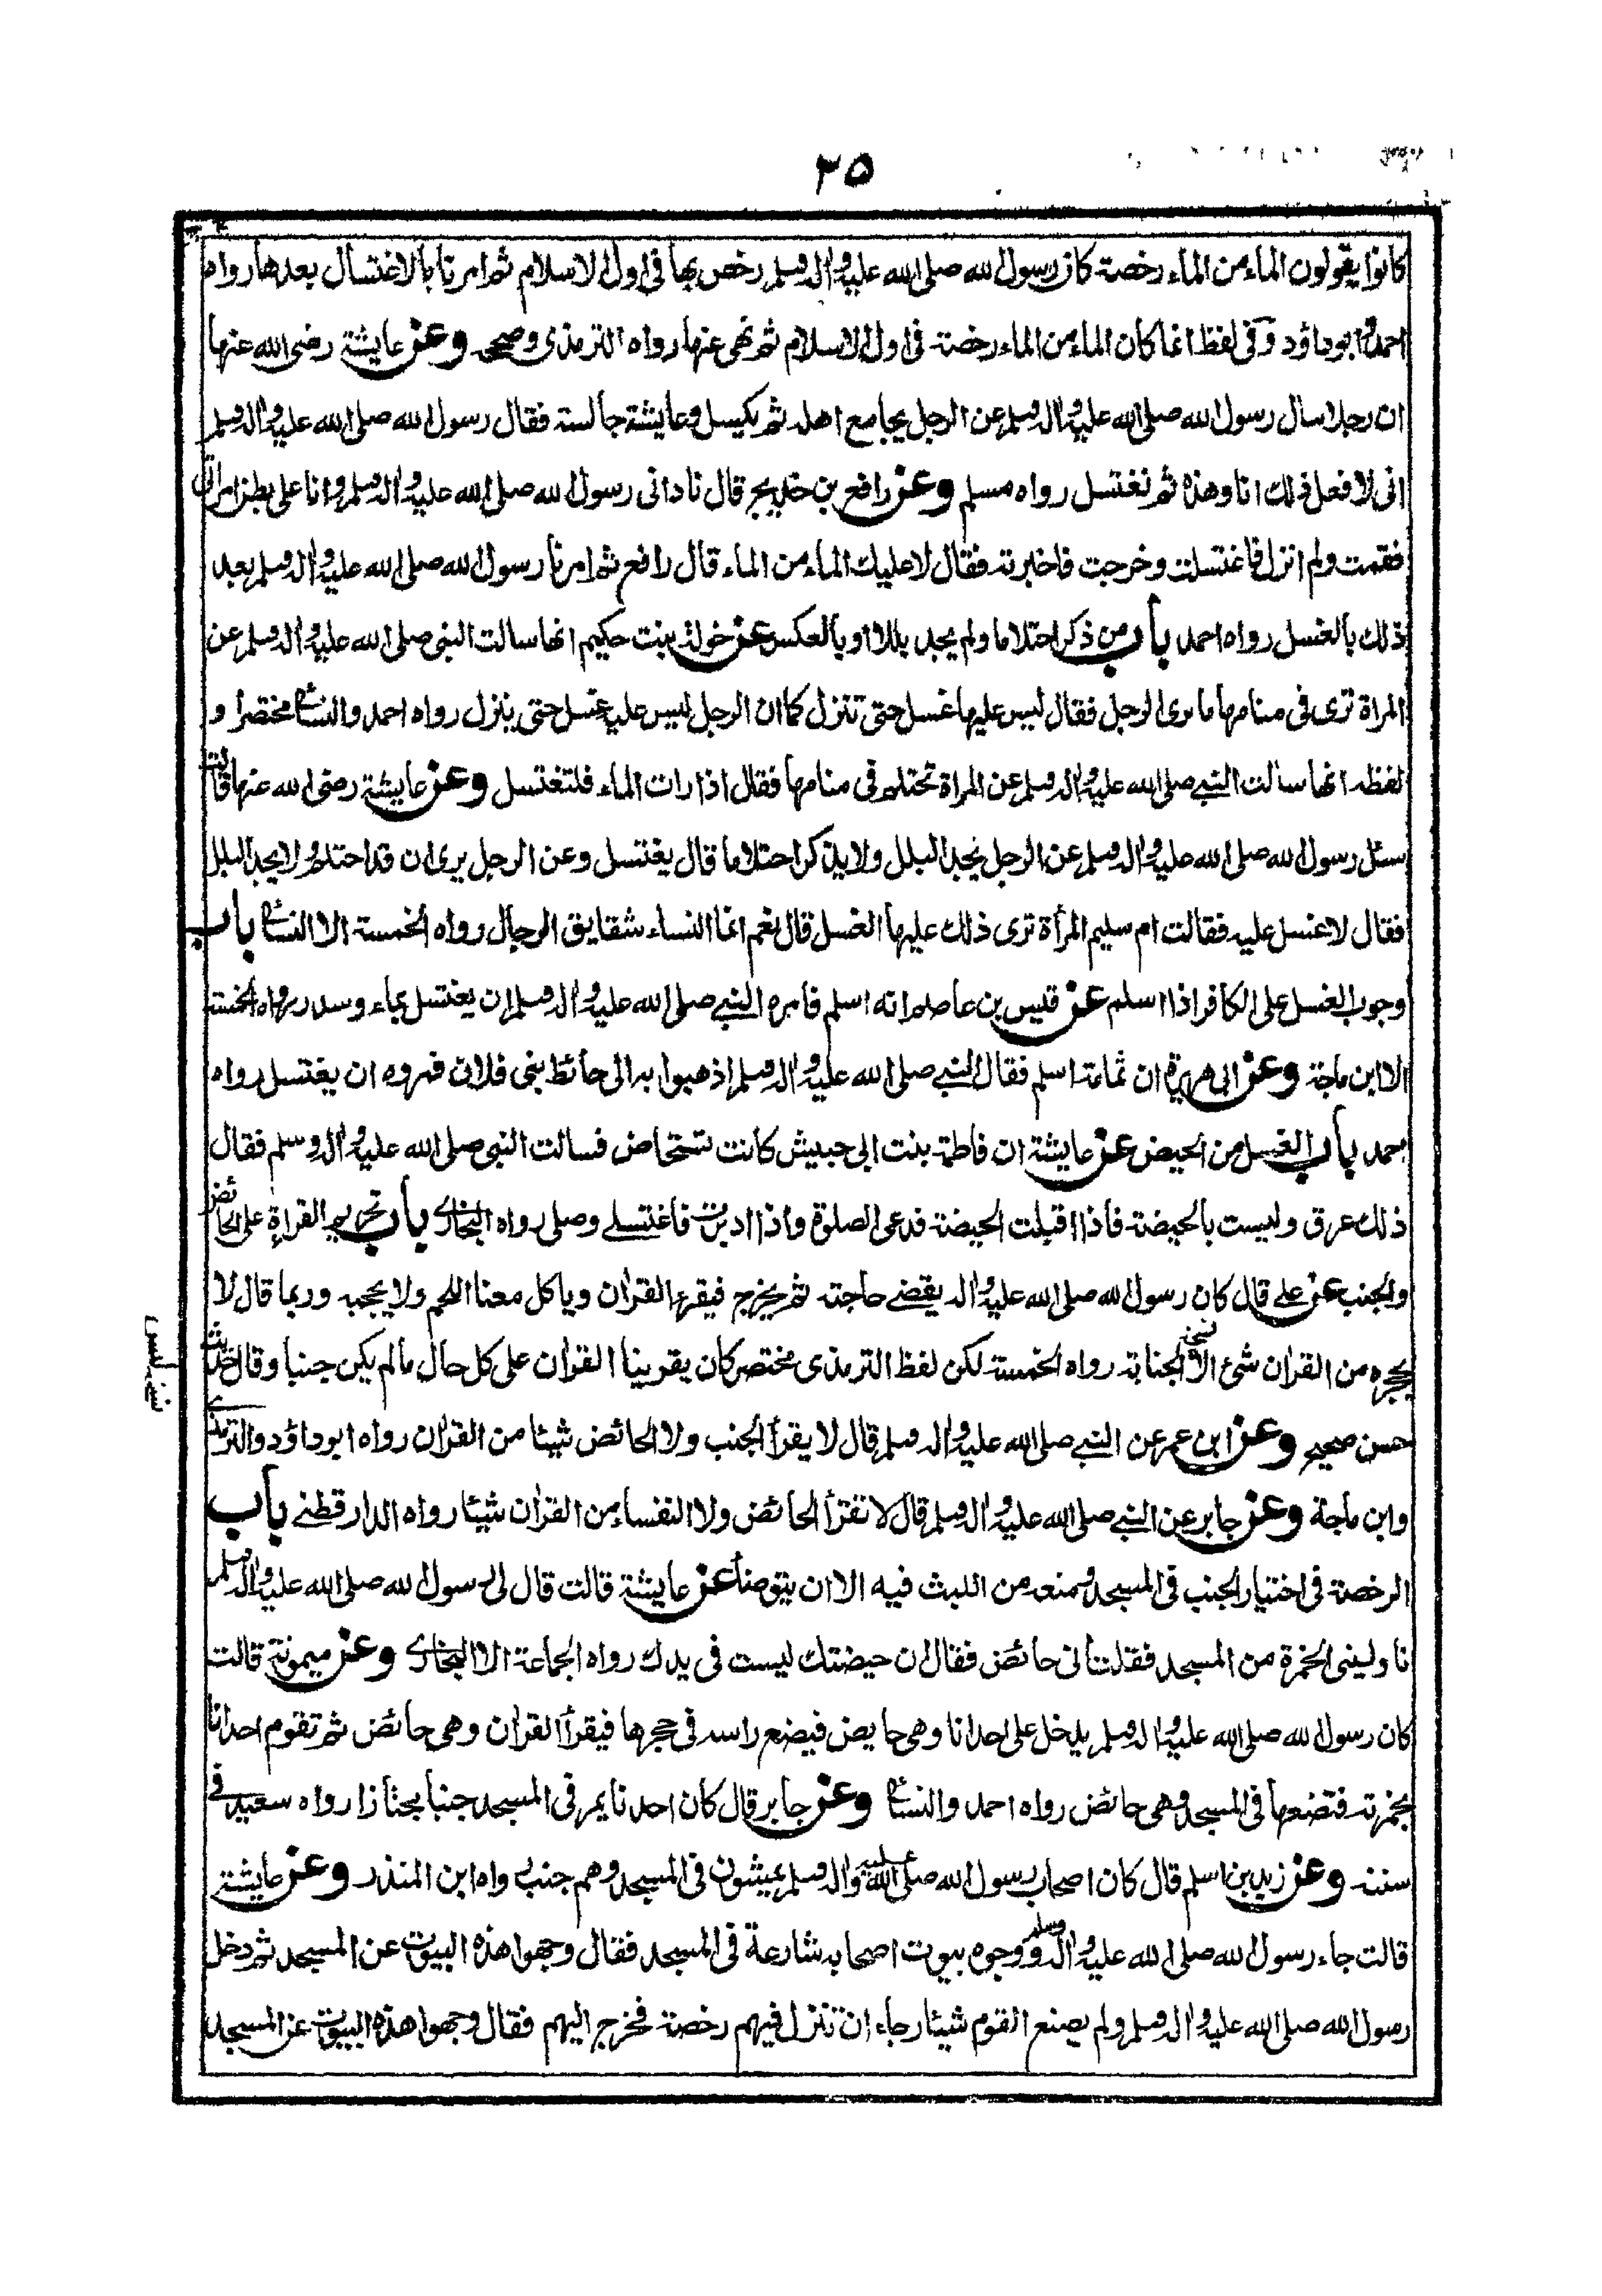 ٣٥
كانوا يقولون الماء من الماء رخصة كان رسول الله صلى الله عليه واله وسلم رخص بها فى اول الاسلام ثم امرنا بالاغتسال بعدها رواه
احمد وابو داؤد وفى لفظ انما كان الماء من الماء رخصة فى اول الاسلام ثم نهى عنها رواه الترمذى وصححه وعن عايشة رضى الله عنها
ان رجلا سال رسول الله صلى الله عليه واله وسلم عن الرجل يجامع اهله ثم يكسل وعايشة جالسة فقال رسول الله صلى الله عليه واله وسلم
انى لافعل ذلك انا وهذه ثم نغتسل رواه مسلم وعن رافع بن خديج قال نادانى رسول الله صلى الله عليه واله وسلم وانا على بطن امراتى
فقمت ولم انزل فاغتسلت وخرجت فاخبرته فقال لا عليك الماء من الماء قال رافع ثم امرنا رسول الله صلى الله عليه واله وسلم بعد
ذلك بالغسل رواه احمد باب من ذكر احتلاما ولم يجد بللا او بالعكس عن خولة بنت حكيم انها سالت النبى صلى الله عليه واله وسلم عن
المراة ترى فى منامها ما يرى الرجل فقال ليس عليها غسل حتى تنزل كما ان الرجل ليس عليه غسل حتى ينزل رواه احمد والنسائى مختصرا و
لفظه انها سالت النبى صلى الله عليه واله وسلم عن المراة تحتلم فى منامها فقال اذا رات الماء فلتغتسل وعن عايشة رضى الله عنها قالت
سئل رسول الله صلى الله عليه واله وسلم عن الرجل يجد البلل ولا يذكر احتلاما قال يغتسل وعن الرجل يرى ان قد احتلم ولا يجد البلل
فقال لا غسل عليه فقالت ام سليم المرأة ترى ذلك عليها الغسل قال نعم انما النساء شقايق الرجال رواه الخمسة الا النسائى باب
وجوب الغسل على الكافر اذا اسلم عن قيس بن عاصم انه اسلم فامره النبى صلى الله عليه واله وسلم ان يغتسل بماء وسدر رواه الخمسة
الا ابن ماجة وعن ابى هريرة ان ثمامة اسلم فقال النبى صلى الله عليه واله وسلم اذهبوا به الى حائط بنى فلان فمروه ان يغتسل رواه
احمد باب الغسل من الحيض عن عايشة ان فاطمة بنت ابى حبيش كانت تستحاض فسالت النبى صلى الله عليه واله وسلم فقال
ذلك عرق وليست بالحيضة فاذا اقبلت الحيضة فدعى الصلوة واذا ادبرت فاغتسلى وصلى رواه البخارى باب تحريم القراءة على الحائض
والجنب عن على قال كان رسول الله صلى الله عليه واله يقضى حاجته ثم يخرج فيقرء القران وياكل معنا اللحم ولا يحجبه وربما قال لا
يحجزه من القران شئ الا الجنابة رواه الخمسة لكن لفظ الترمذى مختصر كان يقرينا القران على كل حال مالم يكن جنبا وقال حديث
حسن صحيح وعن ابن عمر عن النبى صلى الله عليه واله وسلم قال لا يقرأ الجنب ولا الحائض شيئا من القران رواه ابو داؤد والترمذى
وابن ماجة وعن جابر عن النبى صلى الله عليه واله وسلم قال لا تقرأ الحائض ولا النفساء من القران شيئا رواه الدارقطنى باب
الرخصة فى اختيار الجنب فى المسجد ومنعه من اللبث فيه الا ان يتوضأ عن عايشة قالت قال لى رسول الله صلى الله عليه واله وسلم
ناولينى الخمرة من المسجد فقلت انى حائض فقال ان حيضتك ليست فى يدك رواه الجماعة الا البخارى وعن ميمونة قالت
كان رسول الله صلى الله عليه واله وسلم يدخل على احدانا وهى حايض فيضع راسه فى حجرها فيقرأ القران وهى حائض ثم تقوم احدانا
بخمرته فتضعها فى المسجد وهى حائض رواه احمد والنسائى وعن جابر قال كان احدنا يمر فى المسجد جنبا مجتازا رواه سعيد فى
سننه وعن زيد بن اسلم قال كان اصحاب رسول الله صلى الله عليه واله وسلم يمشون فى المسجد وهم جنب رواه ابن المنذر وعن عايشة
قالت جاء رسول الله صلى الله عليه واله وسلم ووجوه بيوت اصحابه شارعة فى المسجد فقال وجهوا هذه البيوت عن المسجد ثم دخل
رسول الله صلى الله عليه واله وسلم ولم يصنع القوم شيئا رجاء ان تنزل فيهم رخصة فخرج اليهم فقال وجهوا هذه البيوت عن المسجد